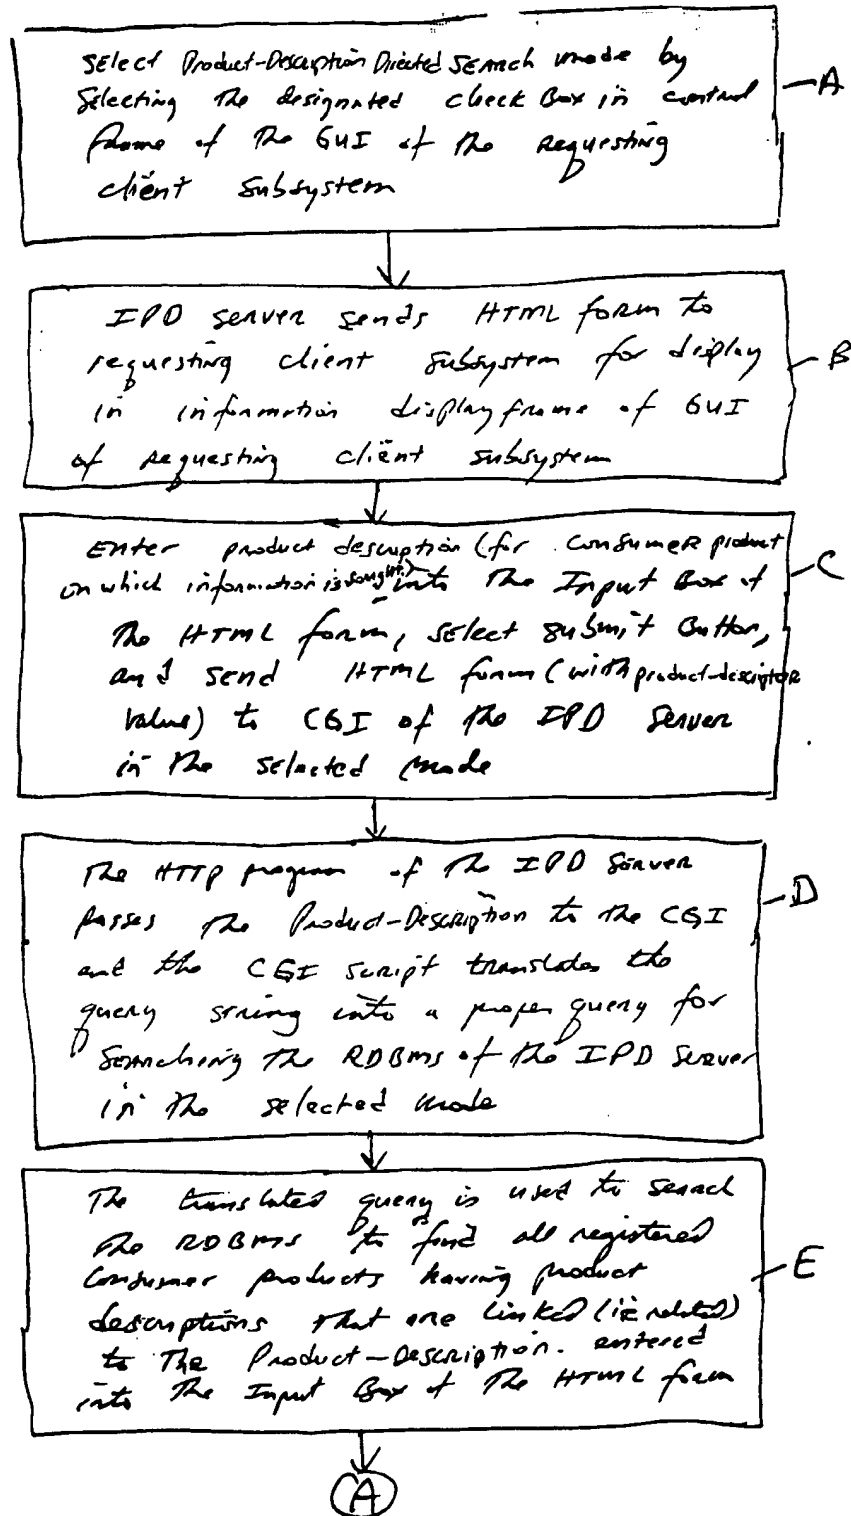 Select Product-Description Directed Search mode by
Selecting the designated check Box in control
frame of the GUI of the requesting
client Subsystem
A
IPD server sends HTML form to
requesting client subsystem for display
in information display frame of GUI
of requesting client subsystem
B
Enter product description (for consumer product
on which information is sought) into the Input Box of
the HTML form, select submit Button,
and send HTML form (with product-descriptor
value) to CGI of the IPD Server
in the selected mode
C
The HTTP program of the IPD Server
passes the Product-Description to the CGI
and the CGI script translates the
query string into a proper query for
Searching the RDBMS of the IPD Server
in the selected mode
D
The translated query is used to search
the RDBMS to find all registered
Consumer products having product
descriptions that are linked (ie related)
to The Product-Description. entered
into the Input Box of the HTML form
E
A